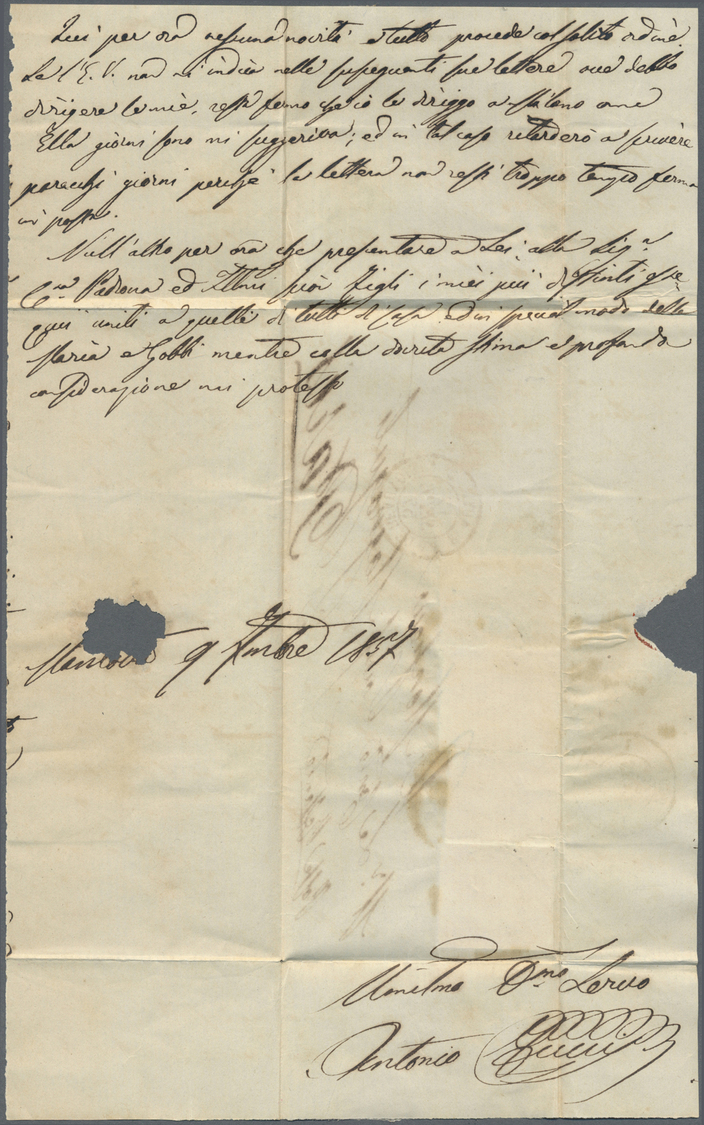 Qui per ora nessuna novità e tutto procede col solito ordine.
Se l'E.V. non mi indica nelle susseguenti sue lettere ove debbo
dirigere le mie, resti fermo che io le diriggo a Milano come
Ella giorni sono mi suggeriva; ed in tal caso ritarderò a scrivere
parecchi giorni perché la lettera non resti troppo tempo ferma
in posta.
Null'altro per ora che presentare a Lei, alla Sig.ra
C.ma Padrona ed Ill.mi suoi Figli i miei più distinti osse
quii uniti a quelli di tutti di Casa ed in special modo della
Maria e Gobbi mentre colla dovuta stima e profonda
considerazione mi protesto
Mantova 9 7mbre 1857
Umilmo D.mo Servo
Antonio